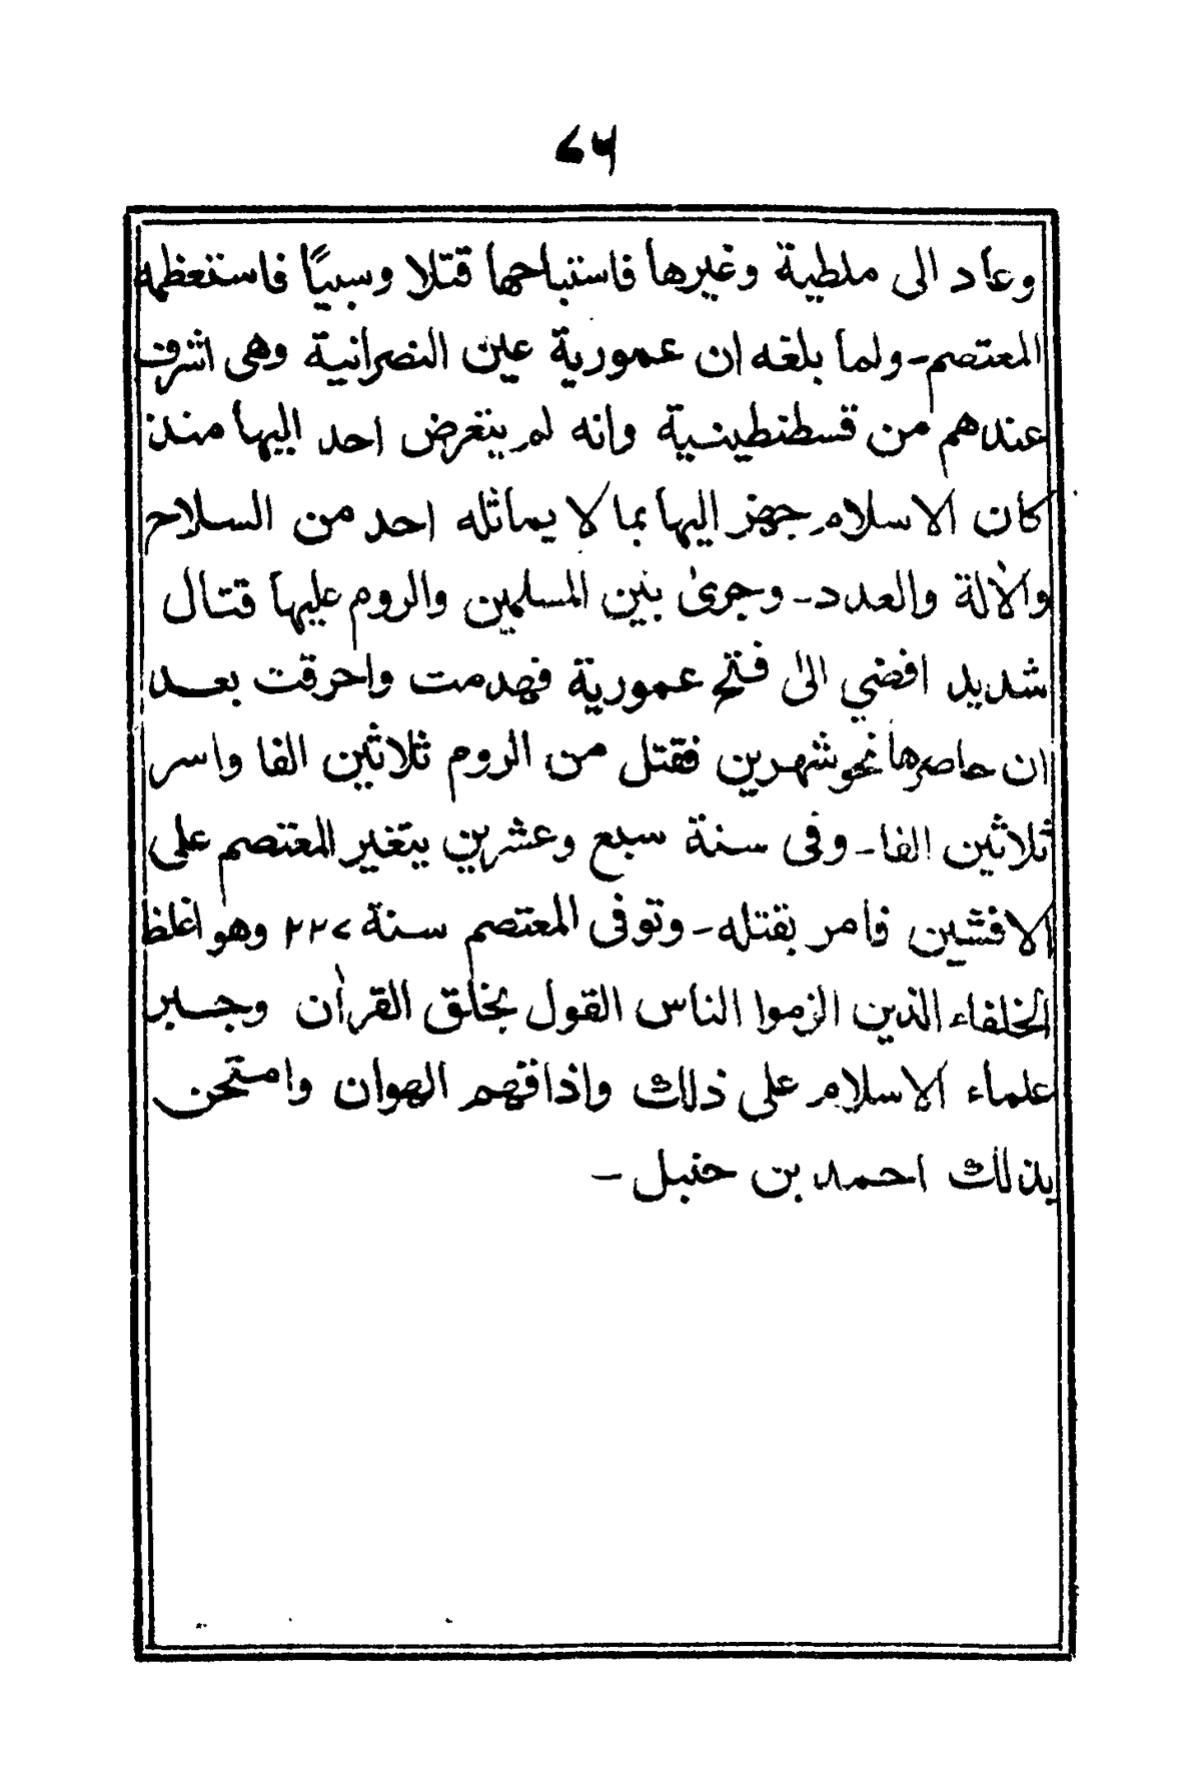 ٧٤
وعاد الى ملطية وغيرها فاستباحها قتلا وسبيًا فاستعظمه
المعتصم - ولما بلغه ان عمورية عين النصرانية وهى اشرف
عندهم من قسطنطينية وانه لم يتعرض احد اليها منذ
كان الاسلام جهز اليها بما لا يماثله احد من السلاح
والألة والعدد - وجرى بين المسلمين والروم عليها قتال
شديد افضي الى فتح عمورية فهدمت واحرقت بعد
ان حاصرها نحو شهرين فقتل من الروم ثلاثين الفا واسر
ثلاثين الفا - وفى سنة سبع وعشرين يتغير المعتصم على
الافشين فامر بقتله - وتوفى المعتصم سنة ٢٢٧ وهو اغلظ
الخلفاء الذين الزموا الناس القول بخلق القرأن وجبر
علماء الاسلام على ذلك واذاقهم الهوان وامتحن
بذلك احمد بن حنبل -